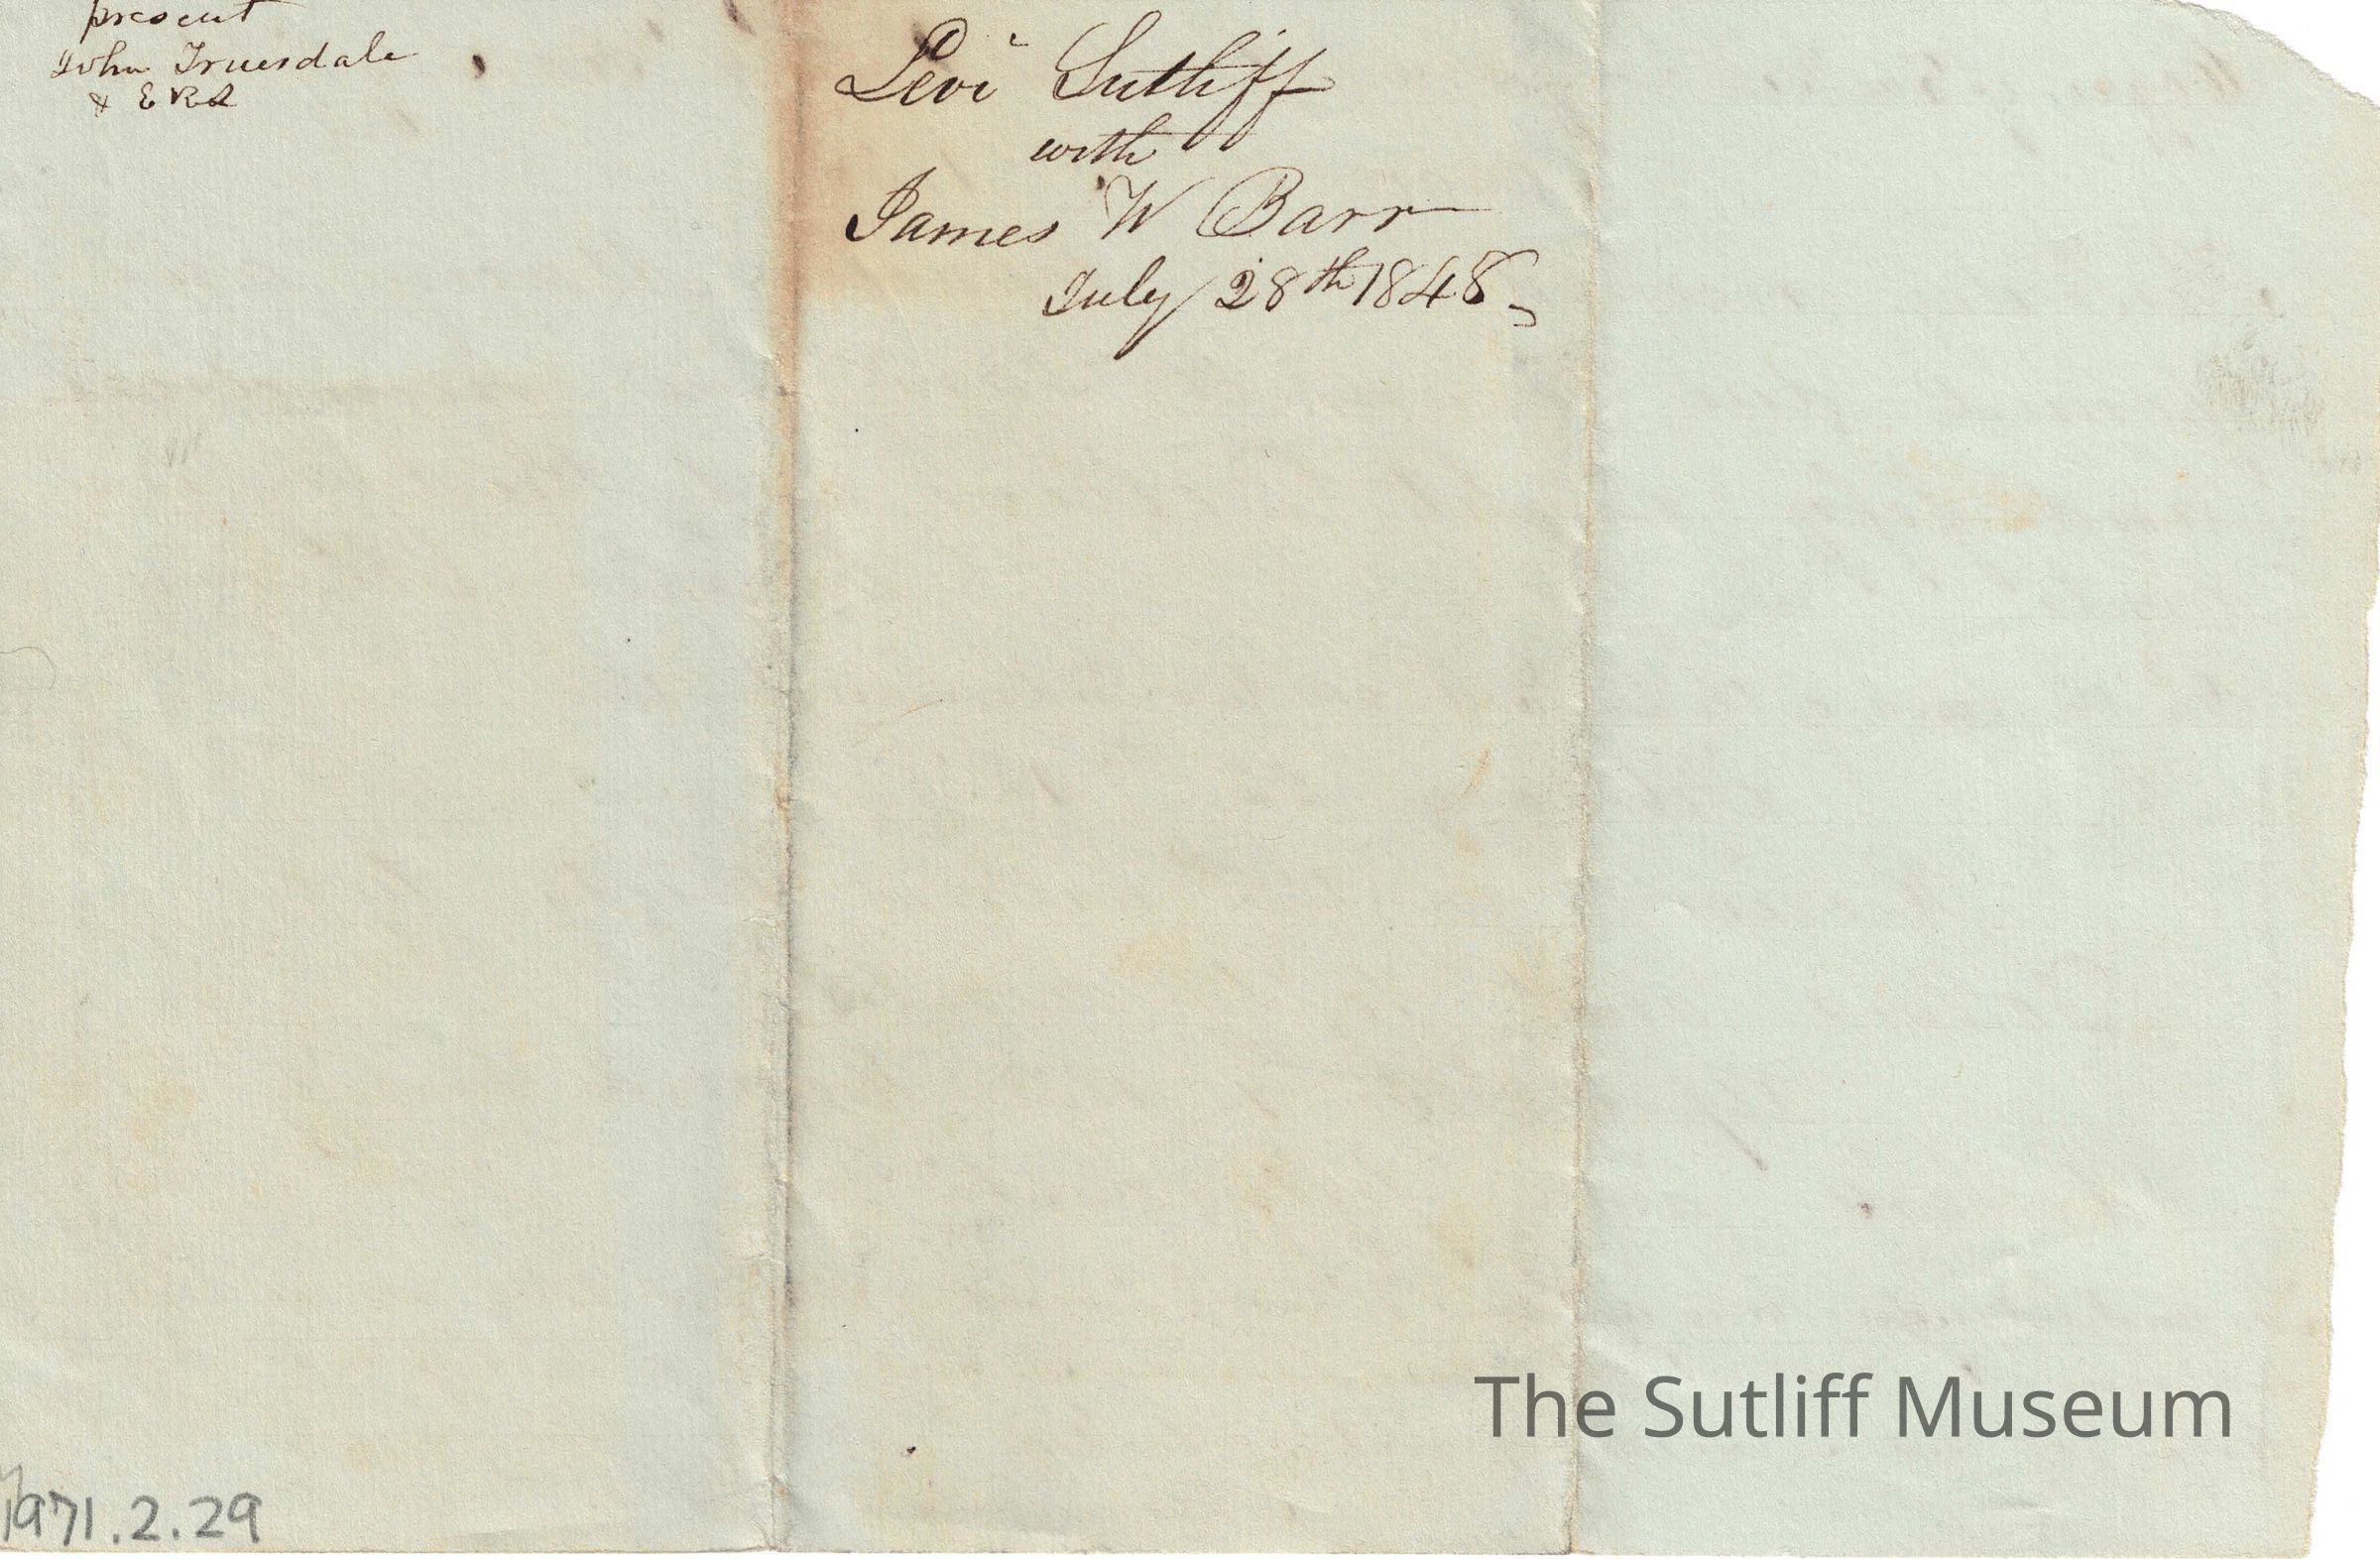 present
John Truesdale
& ERA
Levi Sutliff
with
James W Barr
July 28th 1848
1971.2.29
The Sutliff Museum